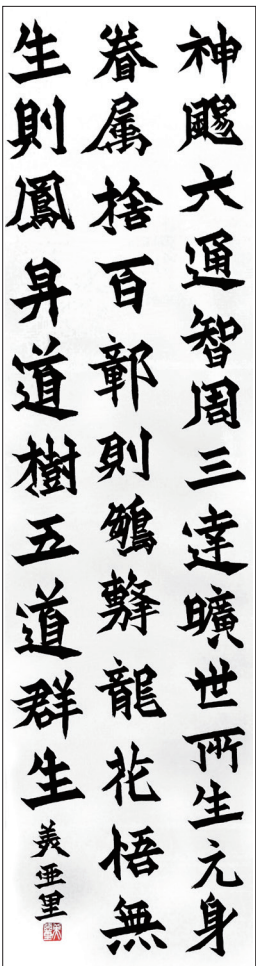 神颺六通智周三達曠世所生元身
眷属捨百鄣則鵬擊龍花悟無
生則鳳昇道樹五道群生
美亜里